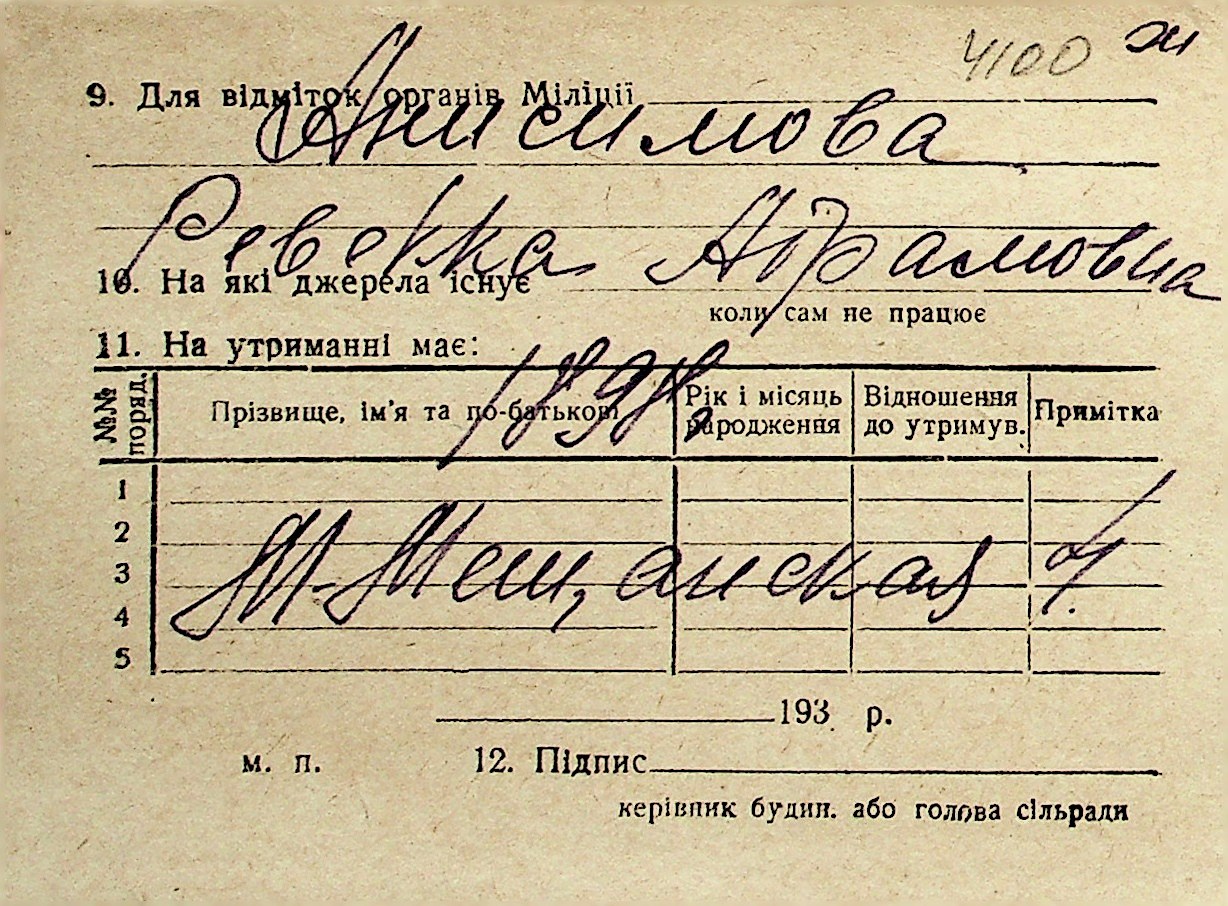 4100 ж
9. Для відміток органів Міліції
Анисимова
Ревекка Абрамовна
10. На які джерела існує
коли сам не працює
11. На утриманні має:
1898
№№ поряд.
Прізвище, ім'я та по-батькові
Рік і місяць народження
Відношення до утримув.
Примітка
1
2
3
М-Мещанская 7.
4
5
193 р.
м. п. 12. Підпис
керівник будин. або голова сільради